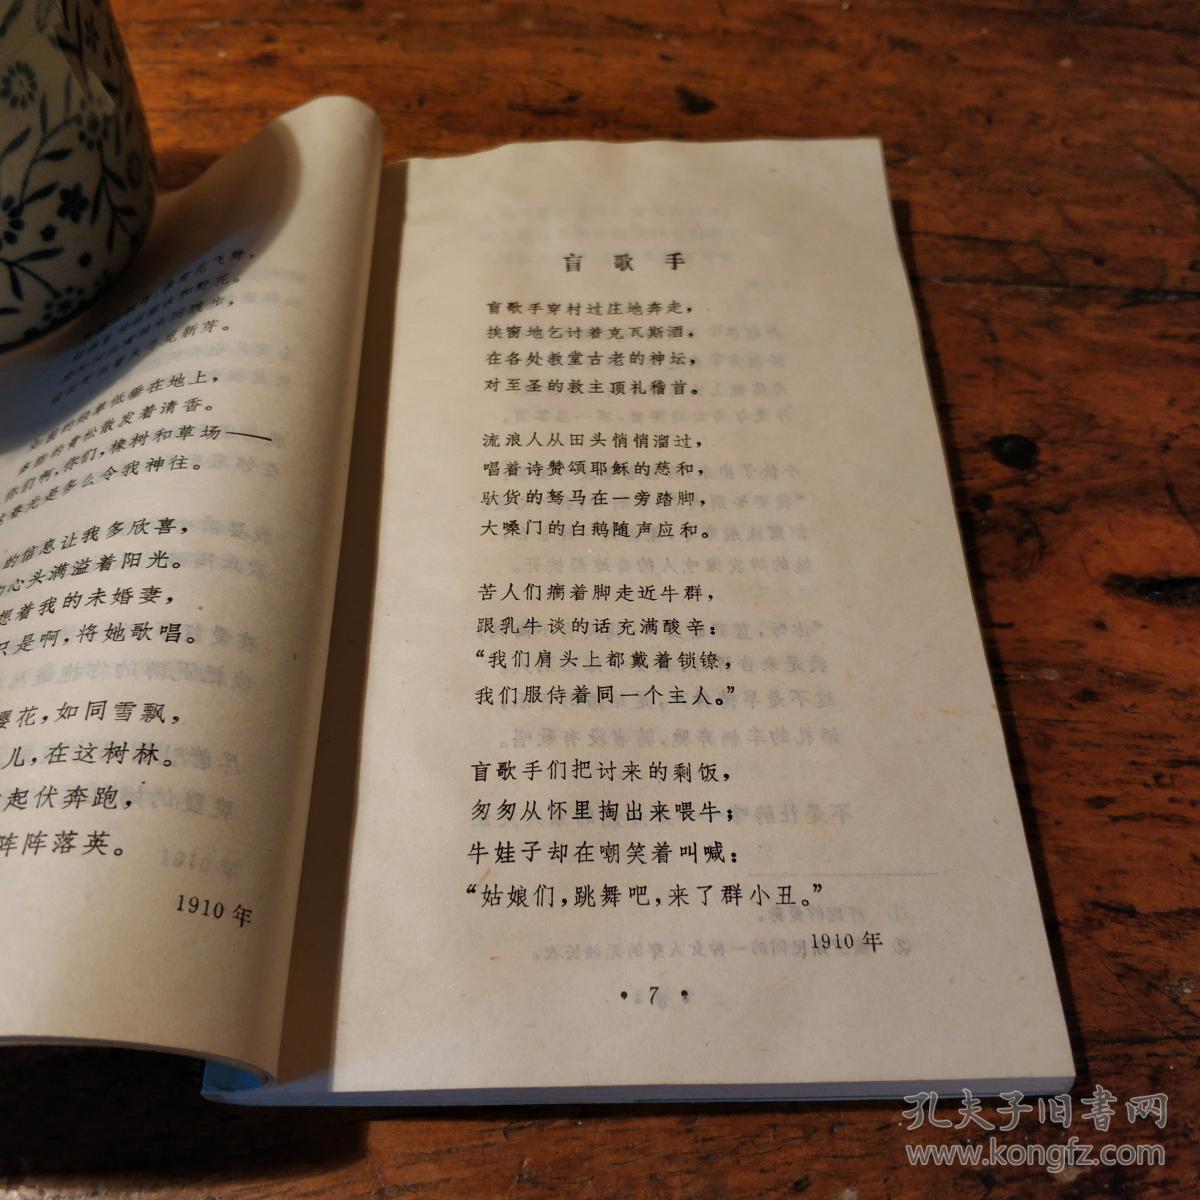 低垂在地上，
散发着清香。
你们啊，你们，橡树和草场——
春光是多么令我神往。
的信息让我多欣喜，
心头满溢着阳光。
想着我的未婚妻，
只是啊，将她歌唱。
樱花，如同雪飘，
儿，在这树林。
起伏奔跑，
阵阵落英。
1910年
盲歌手
盲歌手穿村过庄地奔走，
挨窗地乞讨着克瓦斯酒，
在各处教堂古老的神坛，
对至圣的救主顶礼稽首。
流浪人从田头悄悄溜过，
唱着诗赞颂耶稣的慈和，
驮货的驽马在一旁踏脚，
大嗓门的白鹅随声应和。
苦人们瘸着脚走近牛群，
跟乳牛谈的话充满酸辛：
“我们肩头上都戴着锁镣，
我们服侍着同一个主人。”
盲歌手们把讨来的剩饭，
匆匆从怀里掏出来喂牛；
牛娃子却在嘲笑着叫喊：
“姑娘们，跳舞吧，来了群小丑。”
1910年
• 7 •
孔夫子旧书网
www.kongfz.com